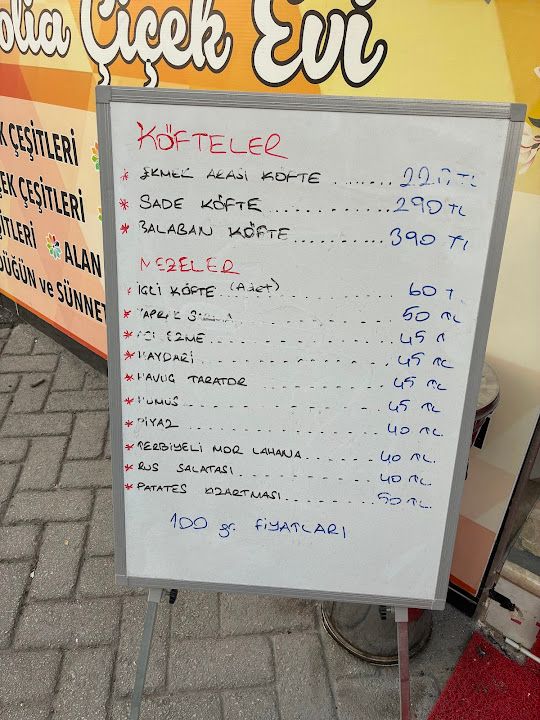 olia Çiçek Evi
K ÇEŞİTLERİ
EK ÇEŞİTLERİ
ŞİTLERİ
ALAN
DÜĞÜN ve SÜNNET
KÖFTELER
* EKMEK ARASI KÖFTE ........ 220 TL
* SADE KÖFTE ........ 290 TL
* BALABAN KÖFTE ........ 390 TL
MEZELER
* İÇLİ KÖFTE (Adet) ........ 60 T
* YAPRAK ........ 50 TL
* ACI EZME ........ 45 TL
* HAYDARİ ........ 45 TL
* HAVUÇ TARATOR ........ 45 TL
* HUMUS ........ 45 TL
* PİYAZ ........ 40 TL
* TERBİYELİ MOR LAHANA ........ 40 TL.
* RUS SALATASI ........ 40 TL.
* PATATES KIZARTMASI ........ 50 TL.
100 gr. FİYATLARI